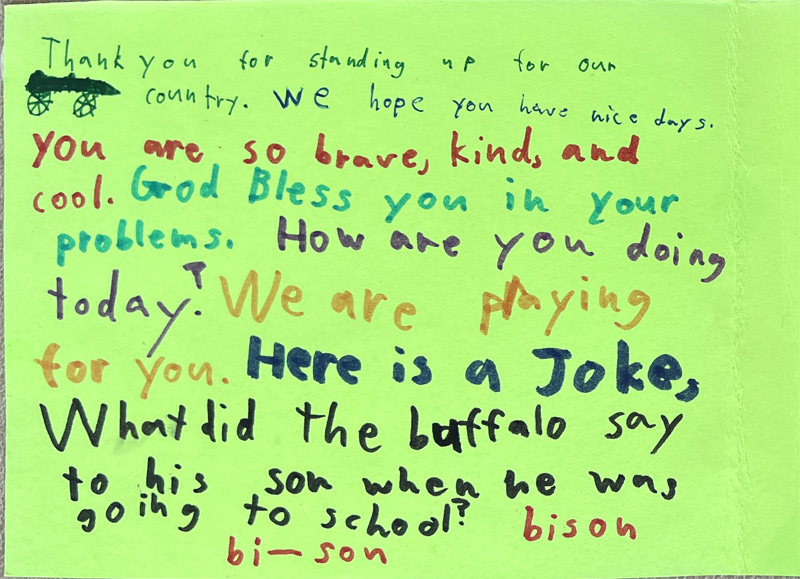 Thank you for standing up for our
country. We hope you have nice days.
you are so brave, kind, and
cool. God Bless you in your
problems. How are you doing
today? We are playing
for you. Here is a Joke,
What did the buffalo say
to his son when he was
going to school? bison
bi-son